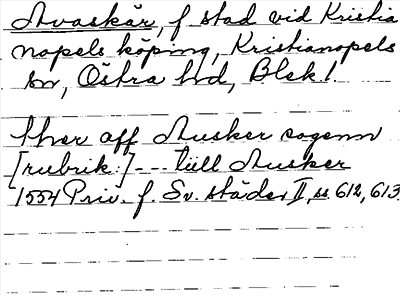 Avaskär, f stad vid Kristia
nopels köping, Kristianopels
sn, Östra hd, Blek l.
ther aff Ausker sagenn
[rubrik:] --- till Ausker
1554 Priv. f. Sv. städer II, ss 612, 613.